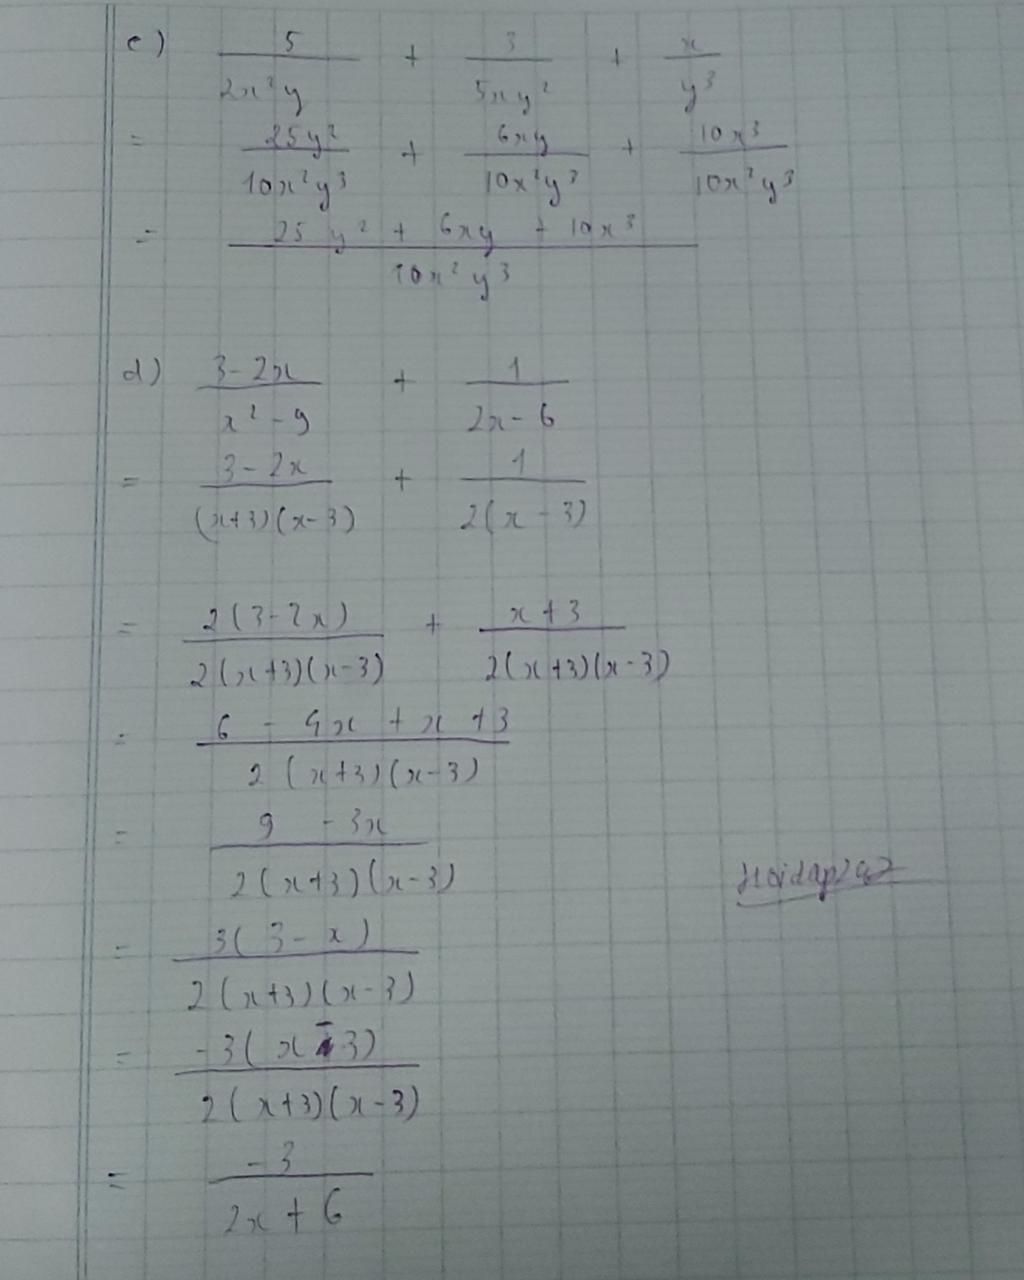 c) 5/(2x²y) + 3/(5xy²) + x/y³
= 25y²/(10x²y³) + 6xy/(10x²y³) + 10x³/(10x²y³)
= (25y² + 6xy + 10x³)/(10x²y³)
d) (3-2x)/(x²-9) + 1/(2x-6)
= (3-2x)/((x+3)(x-3)) + 1/(2(x-3))
= 2(3-2x)/(2(x+3)(x-3)) + (x+3)/(2(x+3)(x-3))
= (6 - 4x + x + 3)/(2(x+3)(x-3))
= (9 - 3x)/(2(x+3)(x-3))
Hoidap247
= 3(3-x)/(2(x+3)(x-3))
= -3(x-3)/(2(x+3)(x-3))
= -3/(2x+6)